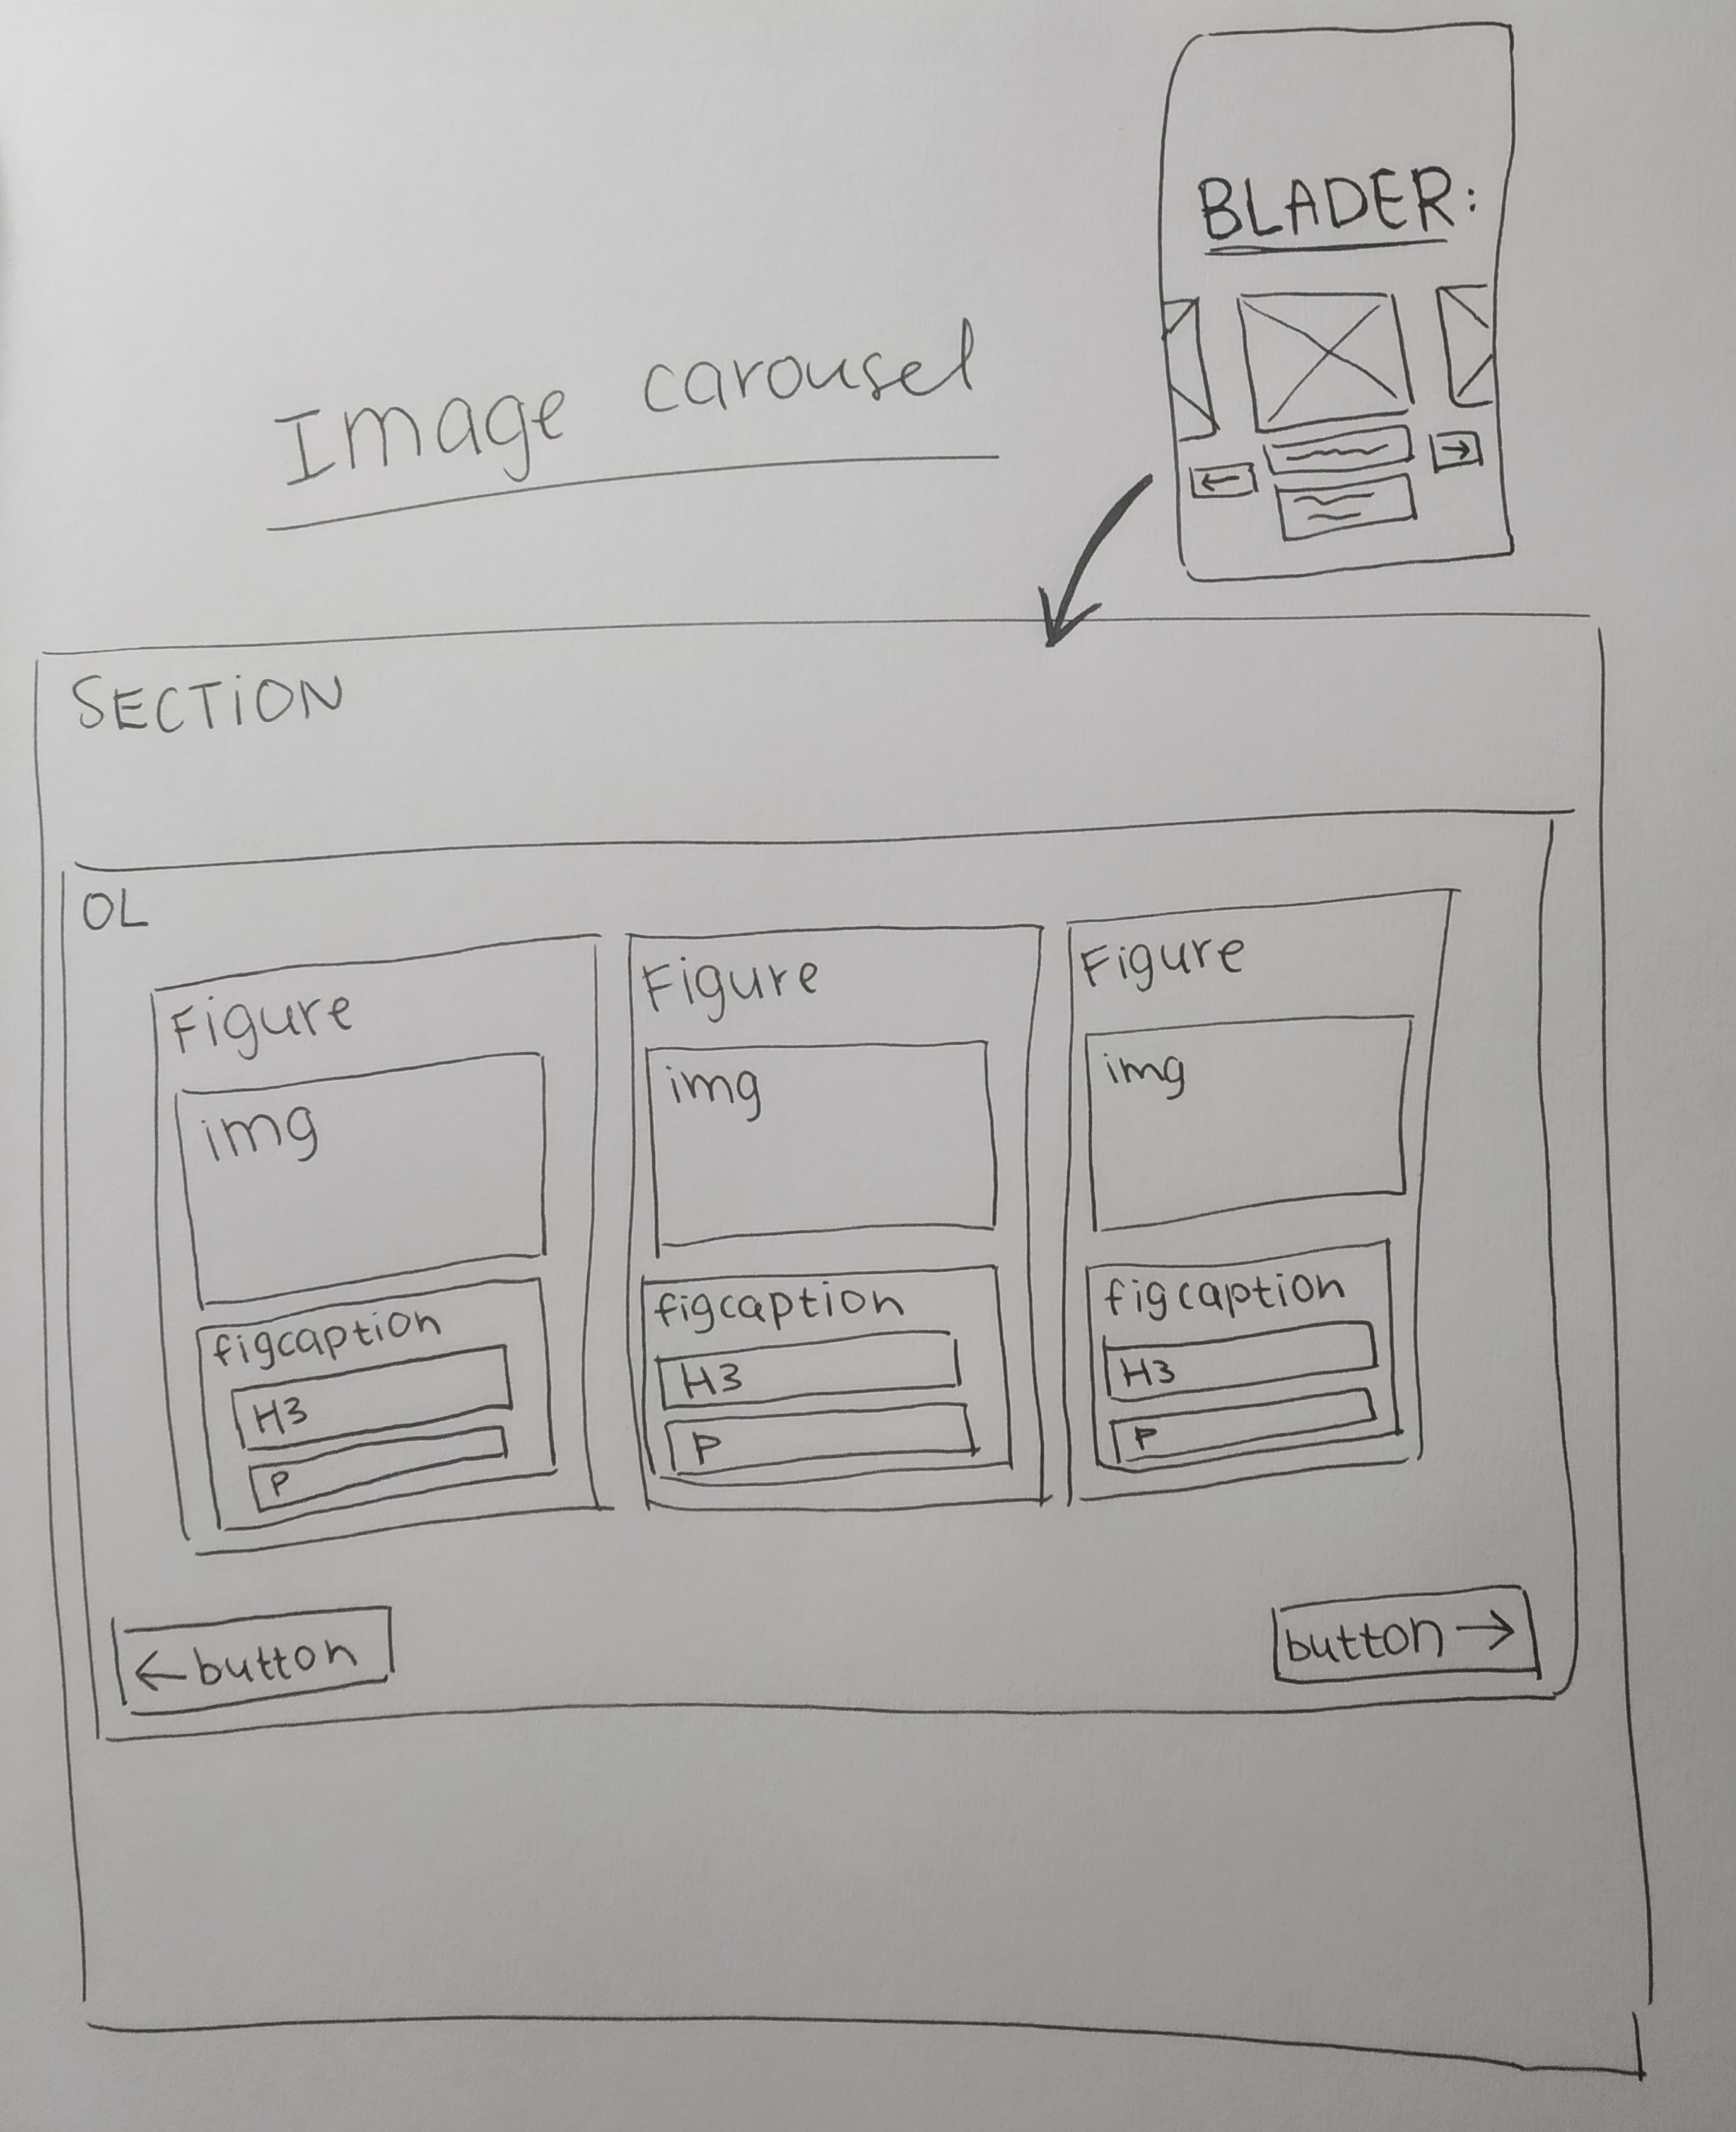 BLADER:
Image carousel
SECTiON
OL
Figure
img
figcaption
H3
P
Figure
img
figcaption
H3
P
Figure
img
figcaption
H3
P
← button
button →